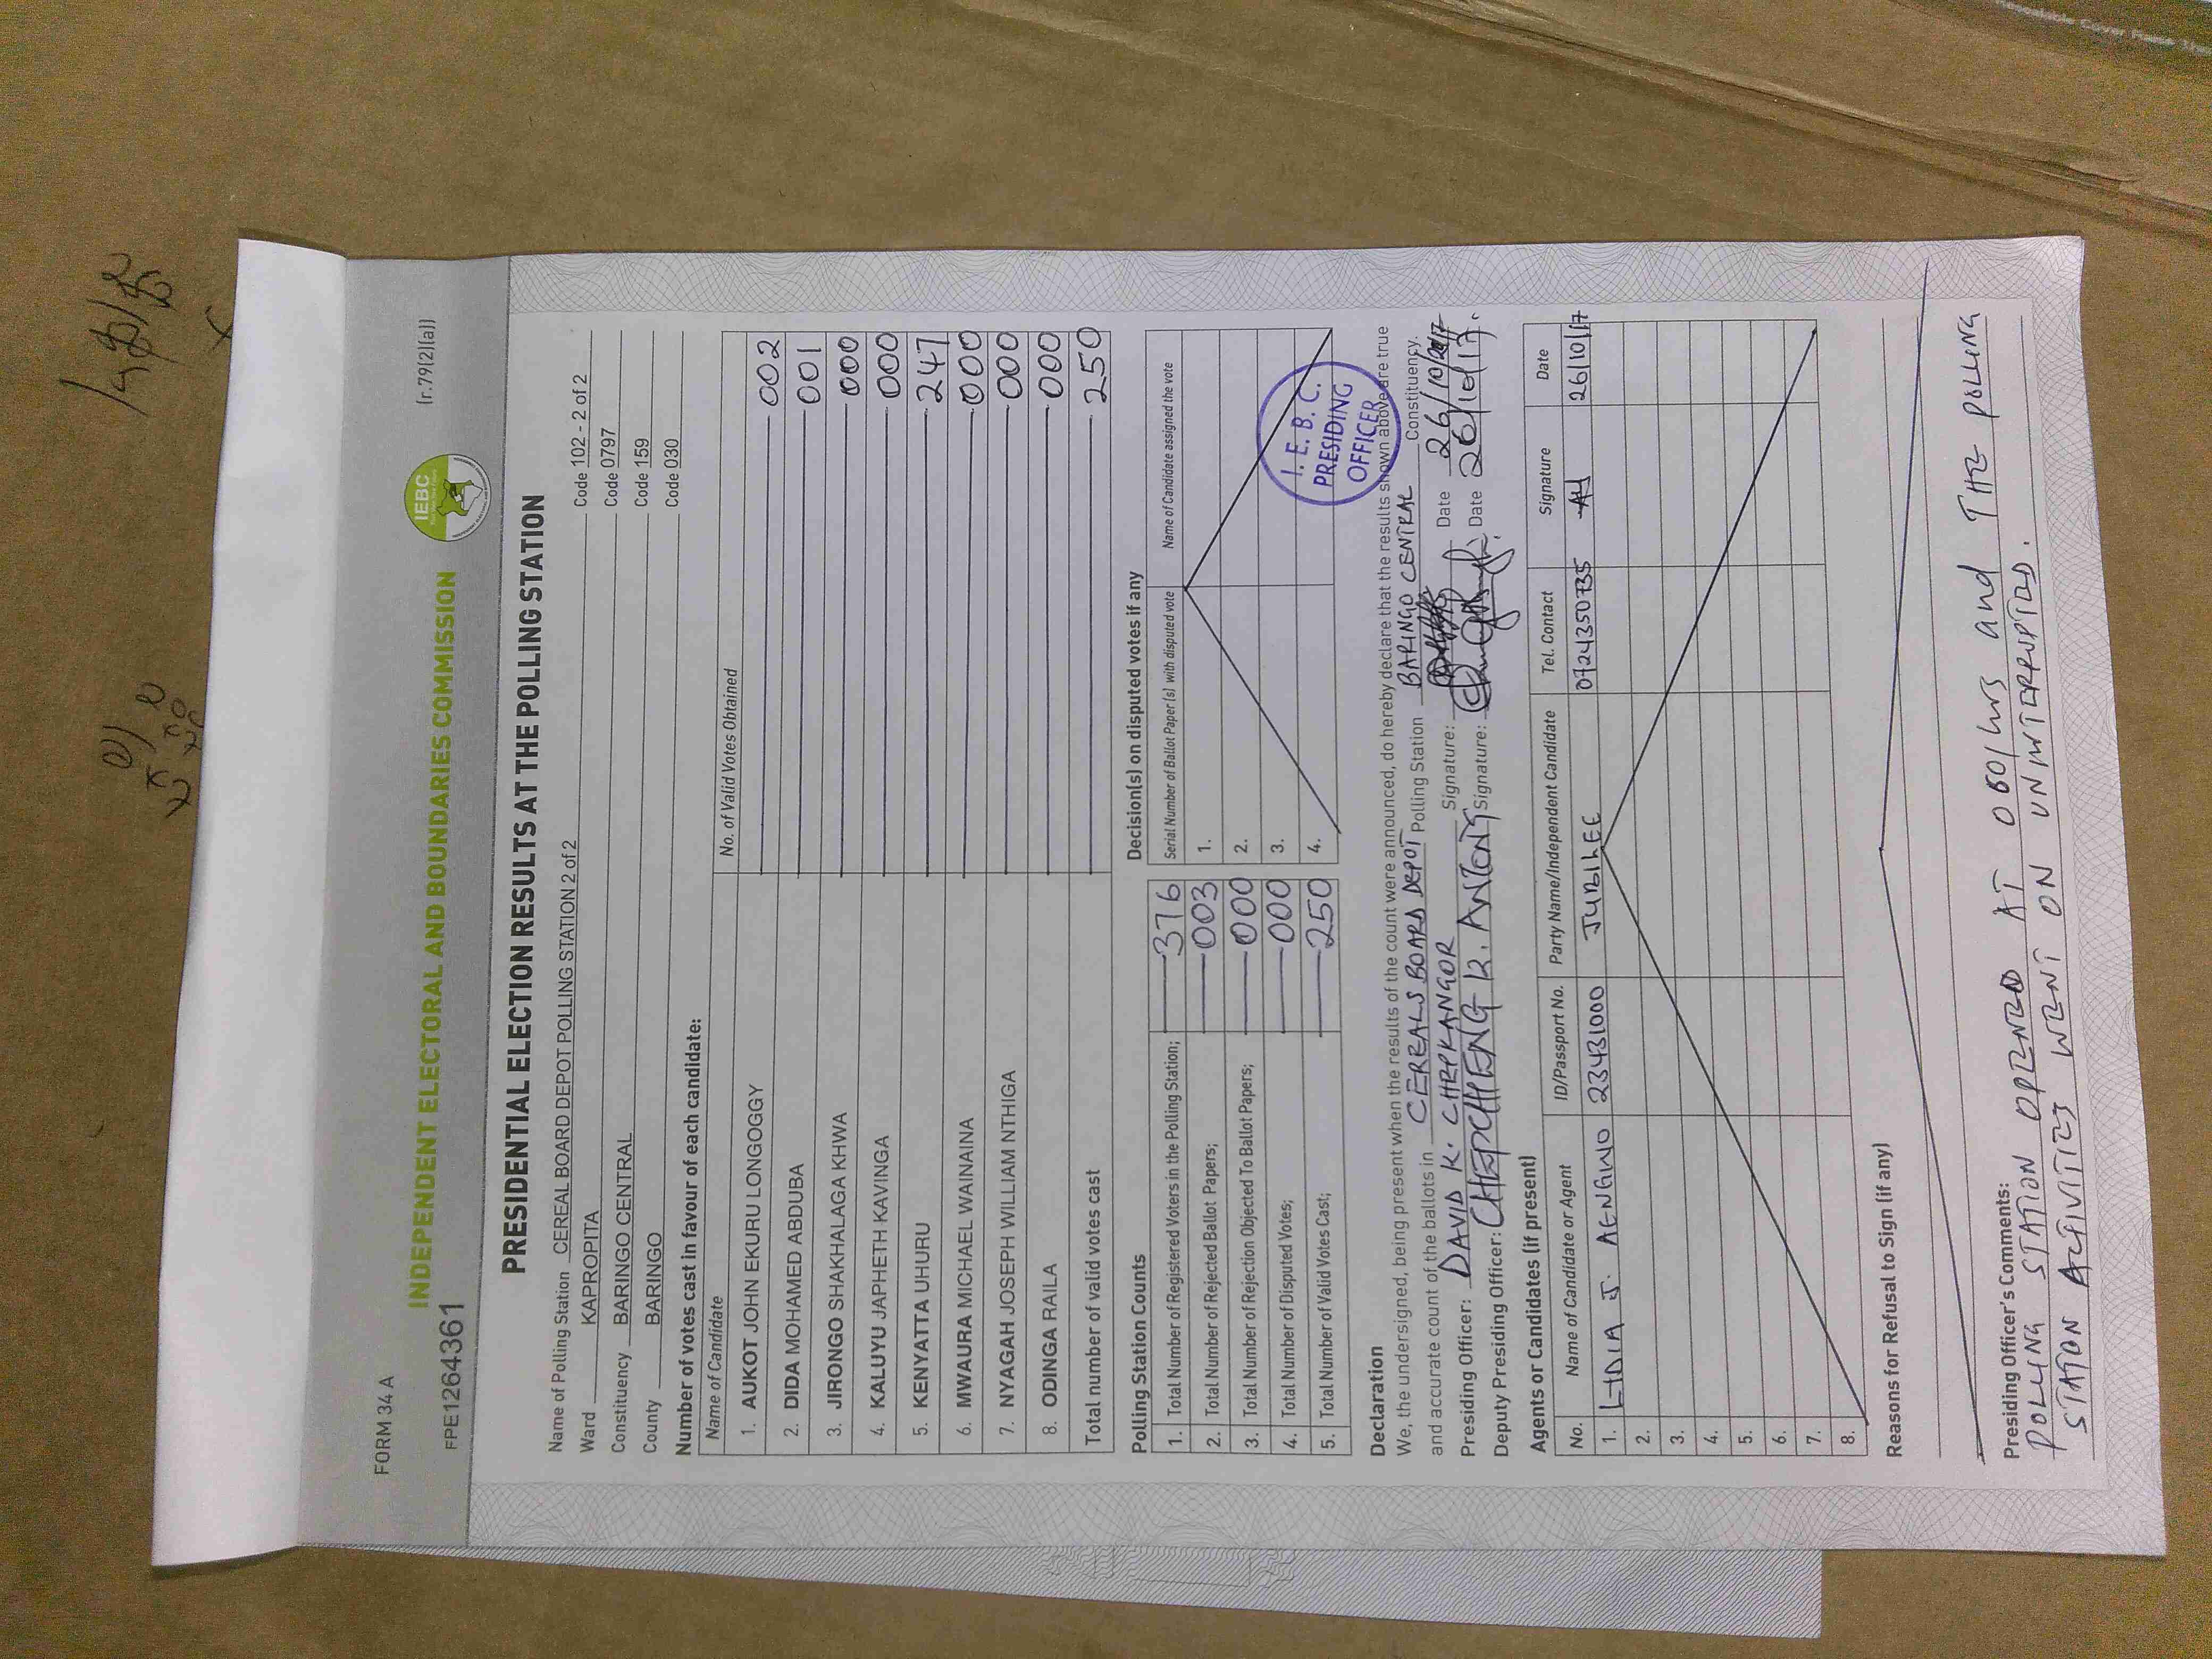 FORM 34 A
(r.79(2)(a))
IEBC
INDEPENDENT ELECTORAL AND BOUNDARIES COMMISSION
FPE1264361
PRESIDENTIAL ELECTION RESULTS AT THE POLLING STATION
Name of Polling Station CEREAL BOARD DEPOT POLLING STATION 2 of 2 Code 102 - 2 of 2
Ward KAPROPITA Code 0797
Constituency BARINGO CENTRAL Code 159
County BARINGO Code 030
Number of votes cast in favour of each candidate:
Name of Candidate No. of Valid Votes Obtained
1. AUKOT JOHN EKURU LONGOGGY 002
2. DIDA MOHAMED ABDUBA 001
3. JIRONGO SHAKHALAGA KHWA 000
4. KALUYU JAPHETH KAVINGA 000
5. KENYATTA UHURU 247
6. MWAURA MICHAEL WAINAINA 000
7. NYAGAH JOSEPH WILLIAM NTHIGA 000
8. ODINGA RAILA 000
Total number of valid votes cast 250
Polling Station Counts
1. Total Number of Registered Voters in the Polling Station; 376
2. Total Number of Rejected Ballot Papers; 003
3. Total Number of Rejection Objected To Ballot Papers; 000
4. Total Number of Disputed Votes; 000
5. Total Number of Valid Votes Cast; 250
Decision(s) on disputed votes if any
Serial Number of Ballot Paper(s) with disputed vote Name of Candidate assigned the vote
1.
2.
3.
4.
I. E. B. C.
PRESIDING
OFFICER
Declaration
We, the undersigned, being present when the results of the count were announced, do hereby declare that the results shown above are true
and accurate count of the ballots in CEREALS BOARD DEPOT Polling Station BARINGO CENTRAL Constituency.
Presiding Officer: DAVID K. CHEPKANGOR Signature: Date 26/10/2017
Deputy Presiding Officer: CHEPCHIENG K. ANTONY Signature: Date 26/10/17.
Agents or Candidates (if present)
No. Name of Candidate or Agent ID/Passport No. Party Name/Independent Candidate Tel. Contact Signature Date
1. LIDIA J. AENGWO 23431000 JUBILEE 0724350735 26/10/17
2.
3.
4.
5.
6.
7.
8.
Reasons for Refusal to Sign (if any)
Presiding Officer's Comments:
POLLING STATION OPENED AT 0601hrs and THE POLLING
STATION ACTIVITIES WENT ON UNINTERRUPTED.